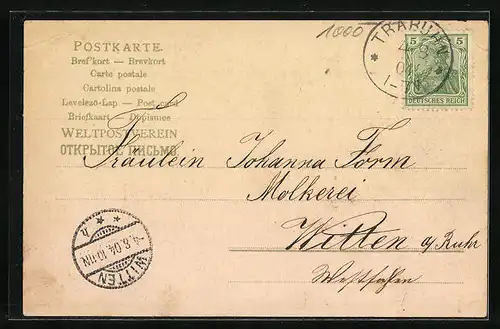 1000
POSTKARTE.
Bref'kort — Brevkort
Carte postale
Cartolina postale
Levelező-Lap — Post card
Briefkaart — Dopisnice
WELTPOSTVEREIN
ОТКРЫТОЕ ПИСЬМО.
5 5
DEUTSCHES REICH
Fräulein Johanna Form
Molkerei
Witten a/Ruhr
Westfahlen
WITTEN
4.8.04. 10-11N
* * h